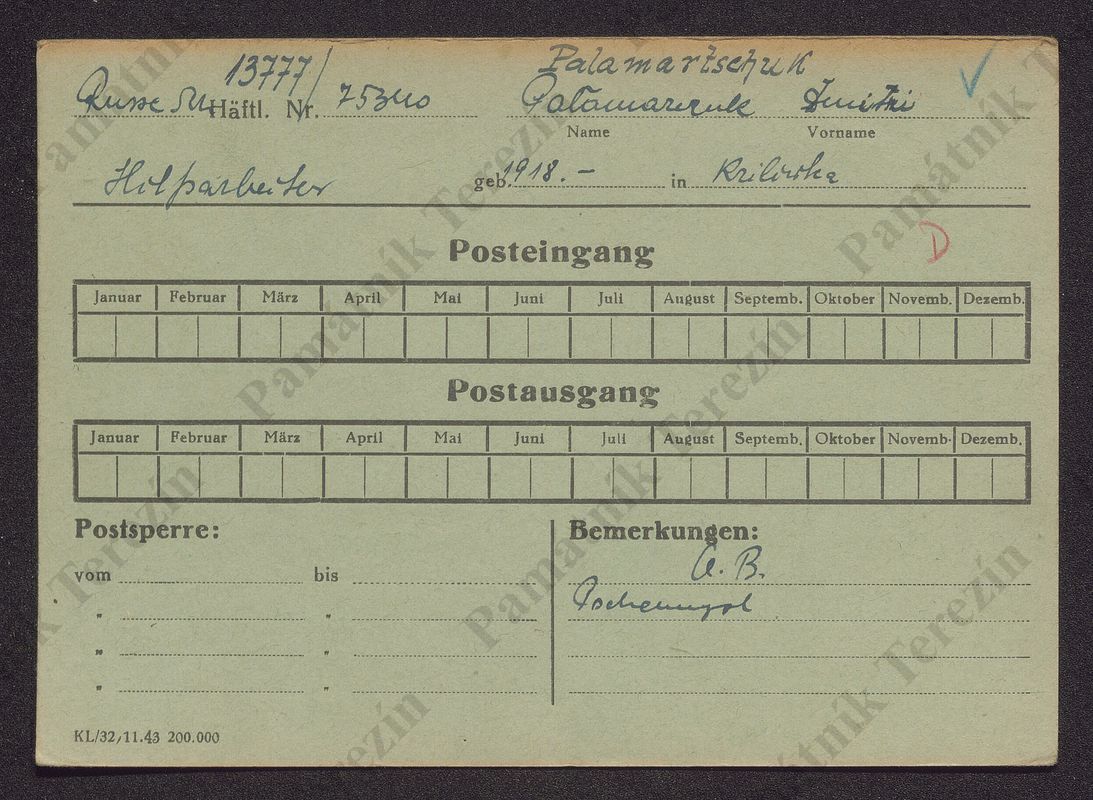 13777/ Palamartschuk
Russe Häftl. Nr. 75340 Dmitri ✓
Name Vorname
Hilfsarbeiter geb. 1918. – in
D
Posteingang
Januar Februar März April Mai Juni Juli August Septemb. Oktober Novemb. Dezemb.
Postausgang
Januar Februar März April Mai Juni Juli August Septemb. Oktober Novemb. Dezemb.
Postsperre: Bemerkungen:
vom bis
" "
" "
" "
KL/32/11.43 200.000
Památník Terezín